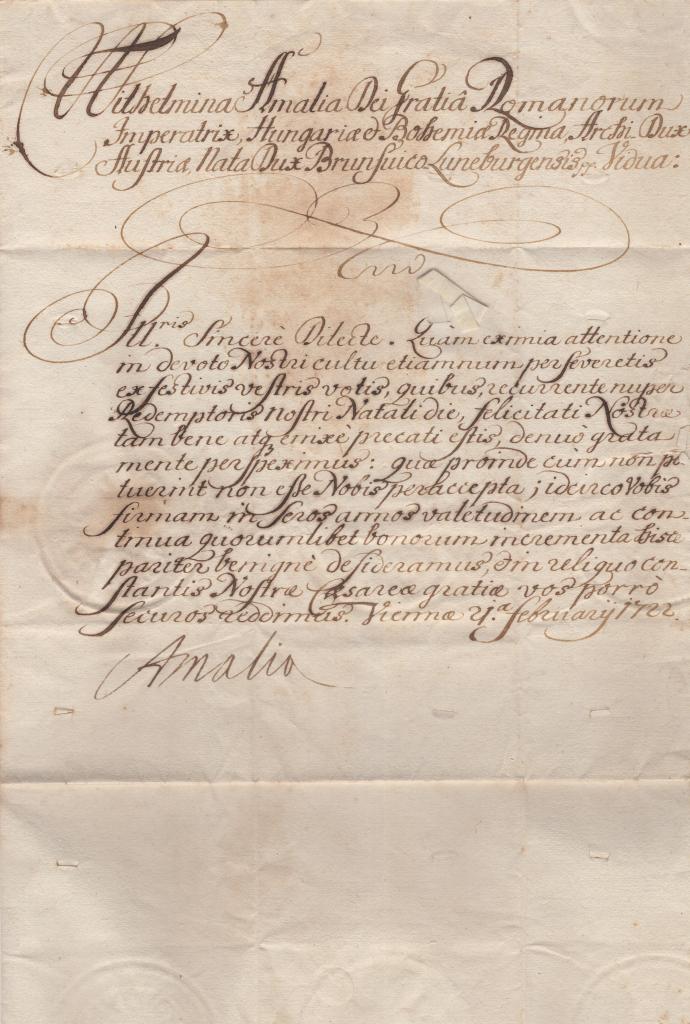 Wilhelmina Amalia Dei Gratiâ Romanorum
Imperatrix, Hungariæ & Bohemiæ Regina, Archi Dux
Austriæ, Nata Dux Brunsuico Luneburgensis, Vidua:
Ill.ris Sincerè Dilecte. Quàm eximia attentione
in devoto Nostri cultu etiamnum perseveretis
ex festivis vestris votis, quibus, recurrente nuper
Redemptoris nostri Natali die, felicitati Nostræ
tam bene atq enixè precati estis, denuò grata
mente perspeximus: quæ proinde cùm non po
tuerint non esse Nobis peraccepta; idcirco Vobis
firmam in seros annos valetudinem ac con
tinua quorumlibet bonorum incrementa hisce
pariter benignè desideramus, & in reliquo con
stantis Nostræ Cæsareæ gratiæ vos porrò
securos reddimus. Viennæ 21.a february 1722.
Amalia